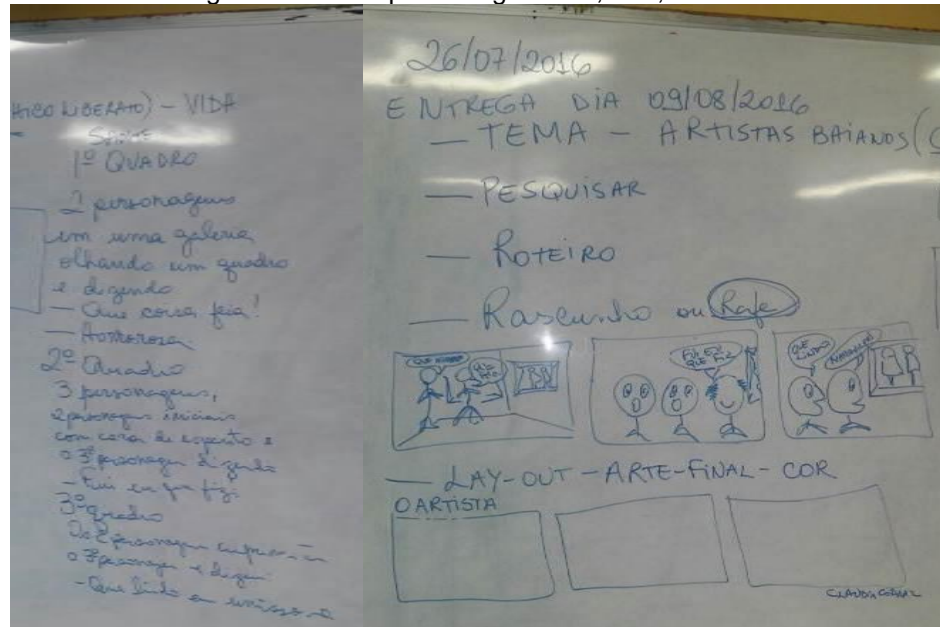 HICO LIBERATO) - VIDA
1º QUADRO
2 personagens
em uma galeria
olhando um quadro
e dizendo
— Que coisa feia!
— Horrorosa
2º Quadro
3 personagens,
2 personagens iniciais
com cara de espanto e
o 3º personagem dizendo
- Fui eu que fiz!
3º quadro
Os 2 personagens
o 3º personagem e dizem
- Que lindo
26/07/2016
ENTREGA DIA 09/08/2016
— TEMA - ARTISTAS BAIANOS (C
— PESQUISAR
— ROTEIRO
— Rascunho ou Rafe
QUE HORROR
FUI EU QUE FIZ
QUE LINDO
— LAY-OUT - ARTE-FINAL - COR
O ARTISTA